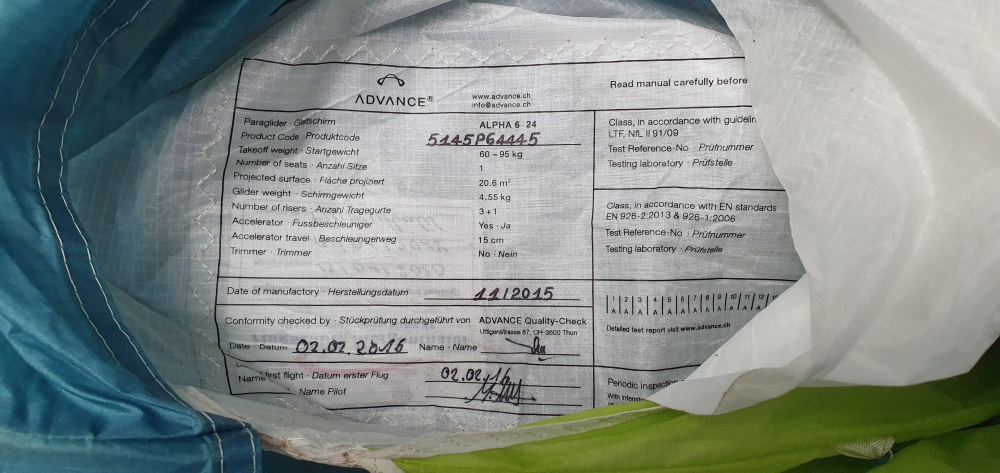 ADVANCE®
www.advance.ch
info@advance.ch
Read manual carefully before
Paraglider · Gleitschirm ALPHA 6 24
Product Code · Produktcode 5145P64445
Takeoff weight · Startgewicht 60 – 95 kg
Number of seats · Anzahl Sitze 1
Projected surface · Fläche projiziert 20.6 m²
Glider weight · Schirmgewicht 4,55 kg
Number of risers · Anzahl Tragegurte 3 + 1
Accelerator · Fussbeschleuniger Yes · Ja
Accelerator travel · Beschleunigerweg 15 cm
Trimmer · Trimmer No · Nein
Date of manufactory · Herstellungsdatum 11/2015
Conformity checked by · Stückprüfung durchgeführt von ADVANCE Quality-Check
Uttigenstrasse 87, CH-3600 Thun
Date · Datum 02.02.2016 Name · Name
first flight · Datum erster Flug 02.02.16
Name Name Pilot
Class, in accordance with guidelin
LTF, NfL II 91/09
Test Reference-No · Prüfnummer
Testing laboratory · Prüfstelle
Class, in accordance with EN standards
EN 926-2:2013 & 926-1:2006
Test Reference-No · Prüfnummer
Testing laboratory · Prüfstelle
1 2 3 4 5 6 7 8 9 10 11 12
A A A A A A A A A A A A
Detailed test report visit www.advance.ch
Periodic inspectio
With